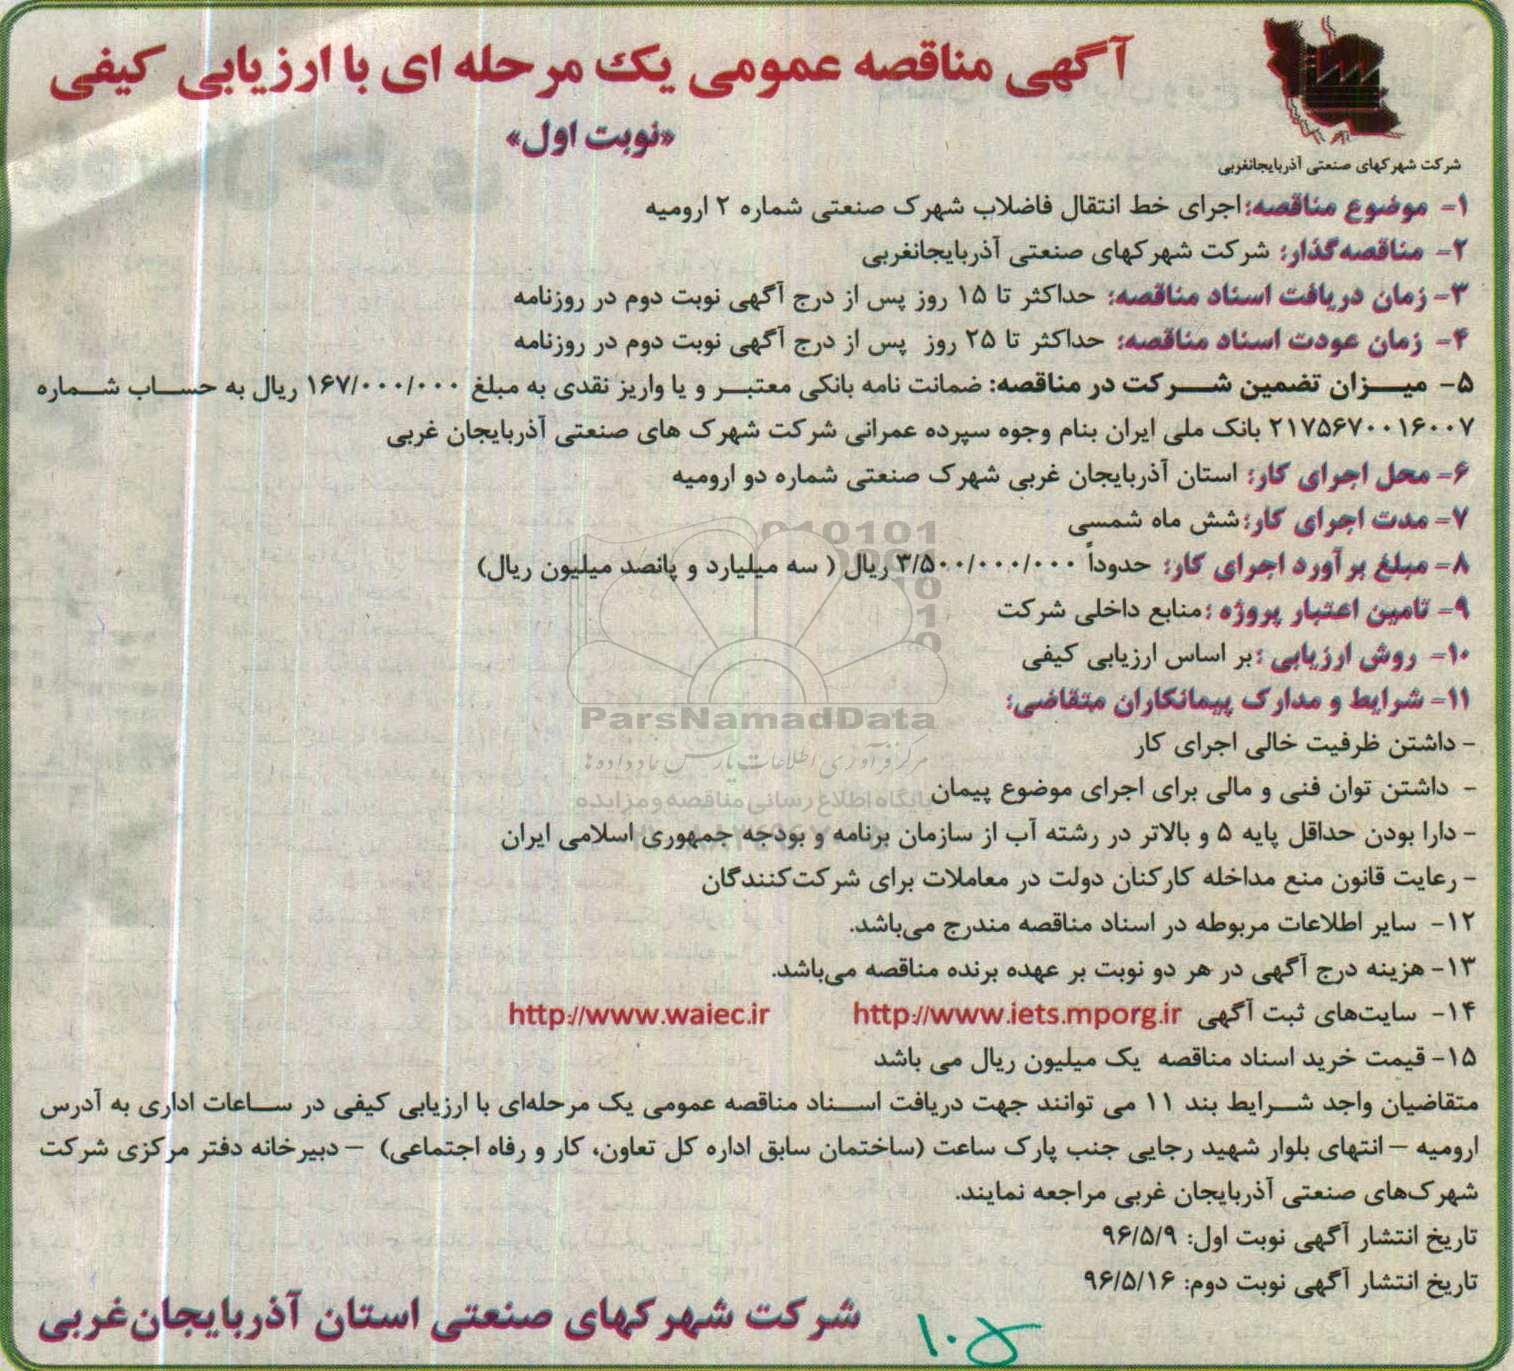 آگهی مناقصه عمومی یک مرحله ای با ارزیابی کیفی
«نوبت اول»
شرکت شهرکهای صنعتی آذربایجانغربی
۱- موضوع مناقصه: اجرای خط انتقال فاضلاب شهرک صنعتی شماره ۲ ارومیه
۲- مناقصه‌گذار: شرکت شهرکهای صنعتی آذربایجانغربی
۳- زمان دریافت اسناد مناقصه: حداکثر تا ۱۵ روز پس از درج آگهی نوبت دوم در روزنامه
۴- زمان عودت اسناد مناقصه: حداکثر تا ۲۵ روز پس از درج آگهی نوبت دوم در روزنامه
۵- میزان تضمین شرکت در مناقصه: ضمانت نامه بانکی معتبر و یا واریز نقدی به مبلغ ۱۶۷/۰۰۰/۰۰۰ ریال به حساب شماره
۲۱۷۵۶۷۰۰۱۶۰۰۷ بانک ملی ایران بنام وجوه سپرده عمرانی شرکت شهرک های صنعتی آذربایجان غربی
۶- محل اجرای کار: استان آذربایجان غربی شهرک صنعتی شماره دو ارومیه
۷- مدت اجرای کار: شش ماه شمسی
۸- مبلغ برآورد اجرای کار: حدوداً ۳/۵۰۰/۰۰۰/۰۰۰ ریال ( سه میلیارد و پانصد میلیون ریال)
۹- تامین اعتبار پروژه : منابع داخلی شرکت
۱۰- روش ارزیابی : بر اساس ارزیابی کیفی
۱۱- شرایط و مدارک پیمانکاران متقاضی:
- داشتن ظرفیت خالی اجرای کار
- داشتن توان فنی و مالی برای اجرای موضوع پیمان
- دارا بودن حداقل پایه ۵ و بالاتر در رشته آب از سازمان برنامه و بودجه جمهوری اسلامی ایران
- رعایت قانون منع مداخله کارکنان دولت در معاملات برای شرکت‌کنندگان
۱۲- سایر اطلاعات مربوطه در اسناد مناقصه مندرج می‌باشد.
۱۳- هزینه درج آگهی در هر دو نوبت بر عهده برنده مناقصه می‌باشد.
۱۴- سایت‌های ثبت آگهی http://www.iets.mporg.ir http://www.waiec.ir
۱۵- قیمت خرید اسناد مناقصه یک میلیون ریال می باشد
متقاضیان واجد شرایط بند ۱۱ می توانند جهت دریافت اسناد مناقصه عمومی یک مرحله‌ای با ارزیابی کیفی در ساعات اداری به آدرس
ارومیه – انتهای بلوار شهید رجایی جنب پارک ساعت (ساختمان سابق اداره کل تعاون، کار و رفاه اجتماعی) – دبیرخانه دفتر مرکزی شرکت
شهرک‌های صنعتی آذربایجان غربی مراجعه نمایند.
تاریخ انتشار آگهی نوبت اول: ۹۶/۵/۹
تاریخ انتشار آگهی نوبت دوم: ۹۶/۵/۱۶
شرکت شهرکهای صنعتی استان آذربایجان‌غربی
ParsNamadData
مرکز فرآوری اطلاعات پارس نماد داده ها
پایگاه اطلاع رسانی مناقصه و مزایده